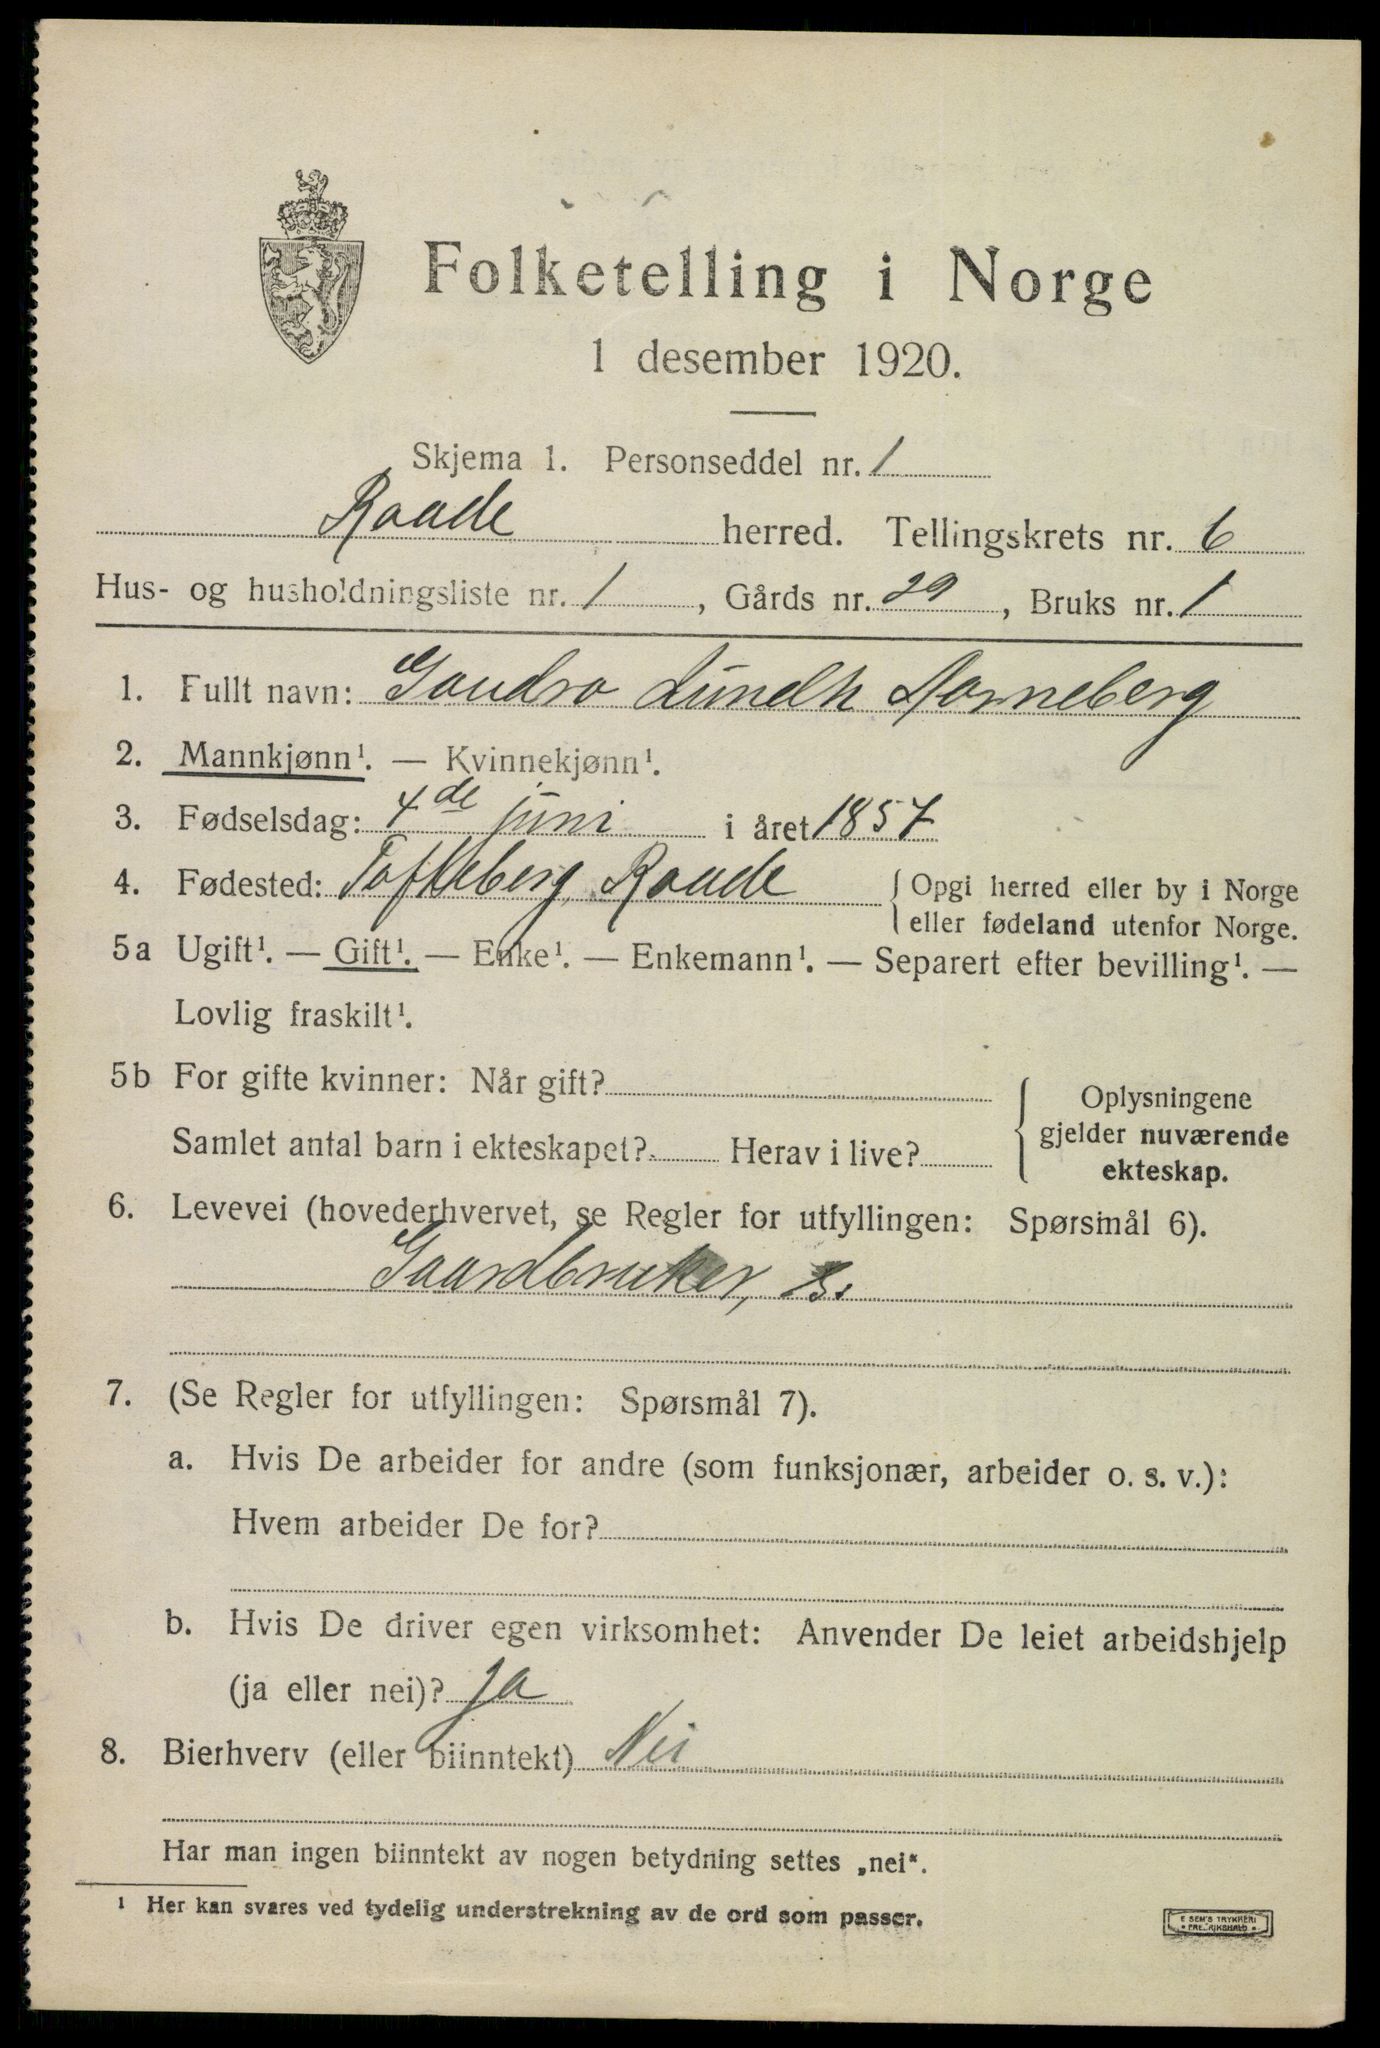 Folketelling i Norge
1 desember 1920.
Skjema 1. Personseddel nr. 1
Raade herred. Tellingskrets nr. 6
Hus- og husholdningsliste nr. 1, Gårds nr. 29, Bruks nr. 1
1. Fullt navn: Lundh
2. Mannkjønn¹. — Kvinnekjønn¹.
3. Fødselsdag: 4de juni i året 1857
4. Fødested: Tofteberg, Raade { Opgi herred eller by i Norge
eller fødeland utenfor Norge.
5a Ugift¹. — Gift¹. — Enke¹. — Enkemann¹. — Separert efter bevilling¹. —
Lovlig fraskilt¹.
5b For gifte kvinner: Når gift? { Oplysningene
gjelder nuværende
Samlet antal barn i ekteskapet? Herav i live?
ekteskap.
6. Levevei (hovederhvervet, se Regler for utfyllingen: Spørsmål 6).
Gaardbruker, S.
7. (Se Regler for utfyllingen: Spørsmål 7).
a. Hvis De arbeider for andre (som funksjonær, arbeider o. s. v.):
Hvem arbeider De for?
b. Hvis De driver egen virksomhet: Anvender De leiet arbeidshjelp
(ja eller nei)? Ja
8. Bierhverv (eller biinntekt) Nei
Har man ingen biinntekt av nogen betydning settes „nei“.
¹ Her kan svares ved tydelig understrekning av de ord som passer.
E SEM'S TRYKKERI
FREDRIKSHALD